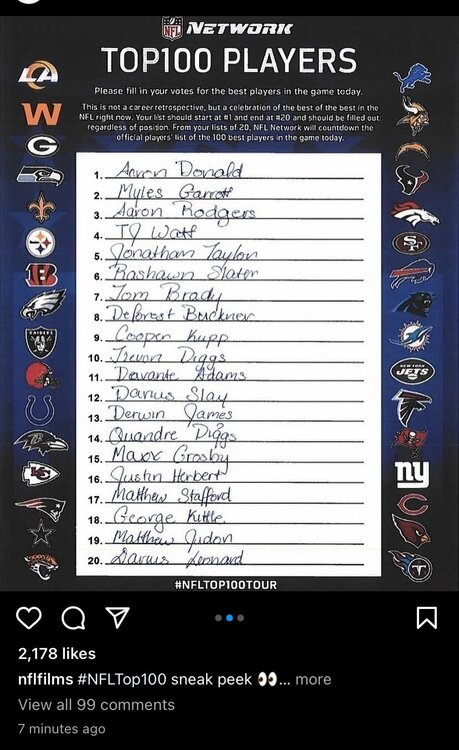 NFL NETWORK
TOP100 PLAYERS
Please fill in your votes for the best players in the game today.
This is not a career retrospective, but a celebration of the best of the best in the
NFL right now. Your list should start at #1 and end at #20 and should be filled out
regardless of position. From your lists of 20, NFL Network will countdown the
official players' list of the 100 best players in the game today.
1. Aaron Donald
2. Myles Garrett
3. Aaron Rodgers
4. TJ Watt
5. Jonathan Taylor
6. Rashawn Slater
7. Tom Brady
8. Deforest Buckner
9. Cooper Kupp
10. Trevon Diggs
11. Davante Adams
12. Darius Slay
13. Derwin James
14. Quandre Diggs
15. Maxx Crosby
16. Justin Herbert
17. Matthew Stafford
18. George Kittle
19. Matthew Judon
20. Darius Leonard
W
G
SF
RAIDERS
NEW YORK
JETS
ny
C
T
#NFLTOP100TOUR
2,178 likes
nflfilms #NFLTop100 sneak peek 👀... more
View all 99 comments
7 minutes ago